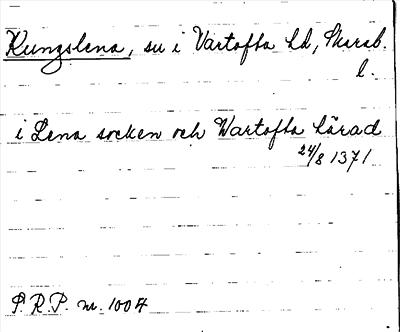 Kungslena, sn i Vartofta hd, Skarab.
l.
i Lena socken och Wartofta härad
24/8 1371
P. R. P. nr. 1004